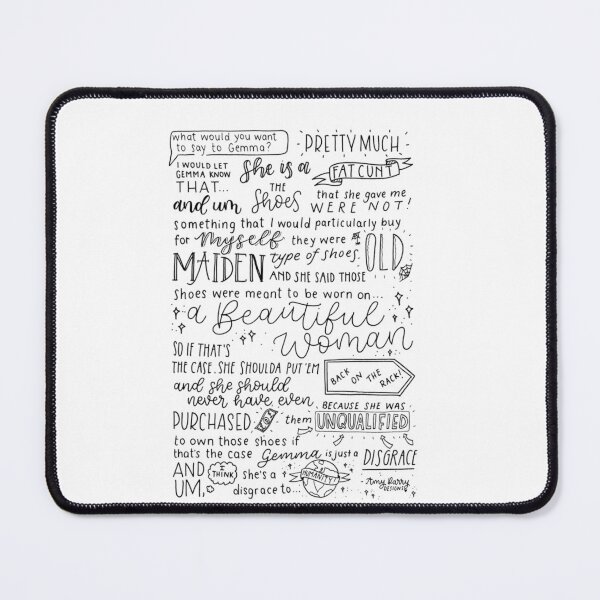 what would you want
to say to Gemma?
PRETTY MUCH
I WOULD LET
GEMMA KNOW
THAT...
She is a
FAT CUNT
and um
THE
Shoes
that she gave me
WERE NOT!
something that I would particularly buy
for Myself they were
MAIDEN type of shoes. OLD
AND SHE SAID THOSE
shoes were meant to be worn on...
a Beautiful
Woman
SO IF THAT'S
THE CASE, SHE SHOULDA PUT 'EM
BACK ON THE RACK!
and she should
never have even
BECAUSE SHE WAS
PURCHASED them UNQUALIFIED
to own those shoes if
that's the case Gemma is just a DISGRACE
AND I THINK she's a
UM, disgrace to... HUMANITY!
Amy Barry
DESIGNS